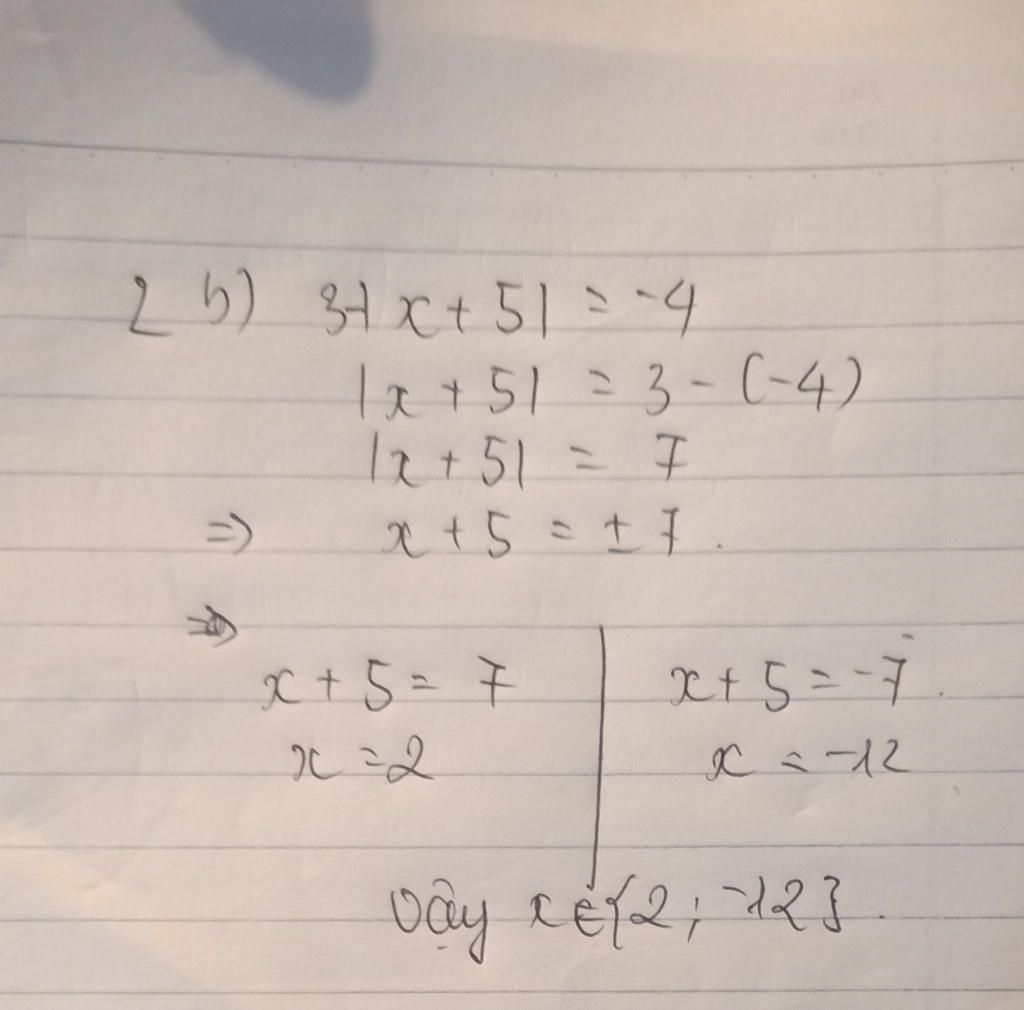 2 b) 3-|x+5| = -4
|x+5| = 3-(-4)
|x+5| = 7
=> x+5 = ±7.
=>
x+5 = 7 | x+5 = -7.
x = 2 | x = -12
Vậy x ∈ {2; -12}.